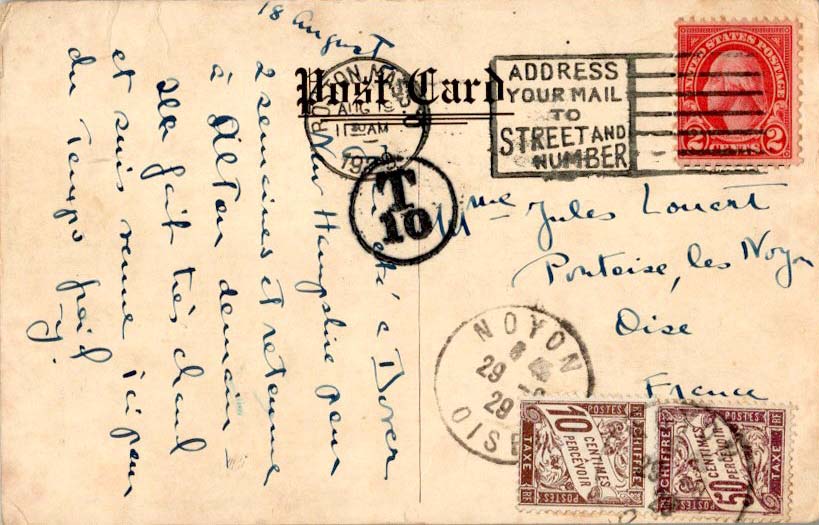 Post Card
AUG 19
11 30 AM
ADDRESS
YOUR MAIL
TO
STREET AND
NUMBER
UNITED STATES POSTAGE
2 CENTS 2
T
10
18 August
été à Dover
New Hampshire pour
2 semaines et retourne
à Alton demain
fait très chaud
et suis venue ici pour
du temps froid
Y.
Mme Jules Louert
Pontoise, les Noyon
Oise
France
NOYON
29
29
OISE
10
CENTIMES
PERCEVOIR
POSTES
CHIFFRE
TAXE
RF
50
CENTIMES
PERCEVOIR
POSTES
CHIFFRE
TAXE
RF